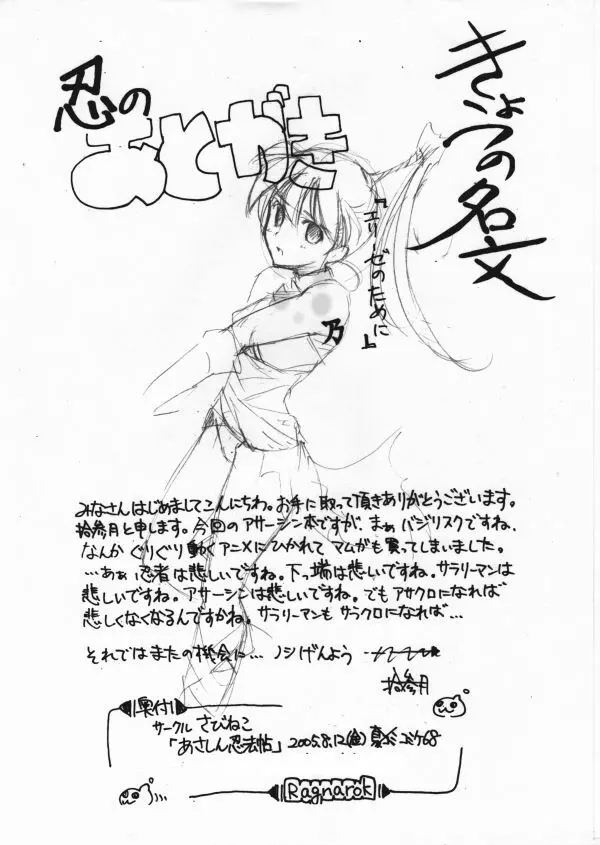 きょうの名文
忍の
あとがき
『エリーゼのために』
乃
みなさんはじめましてこんにちわ。お手に取って頂きありがとうございます。
拾参月と申します。今回のアサーシン本ですが、まぁ バジリスクですね、
なんか ぐりぐり動くアニメにひかれて マムがも買ってしまいました。
…あぁ 忍者は悲しいですね。下っ端は悲しいですね。サラリーマンは
悲しいですね。アサーシンは悲しいですね。でも アサクロになれば
悲しくなくなるんですかね。サラリーマンも サラクロになれば…
それではまたの機会に… ノシ げんよう
拾参月
奥付
サークル さびねこ
「あさしん忍法帖」 2005.8.12(金) 夏コミ コミケ68
Ragnarok